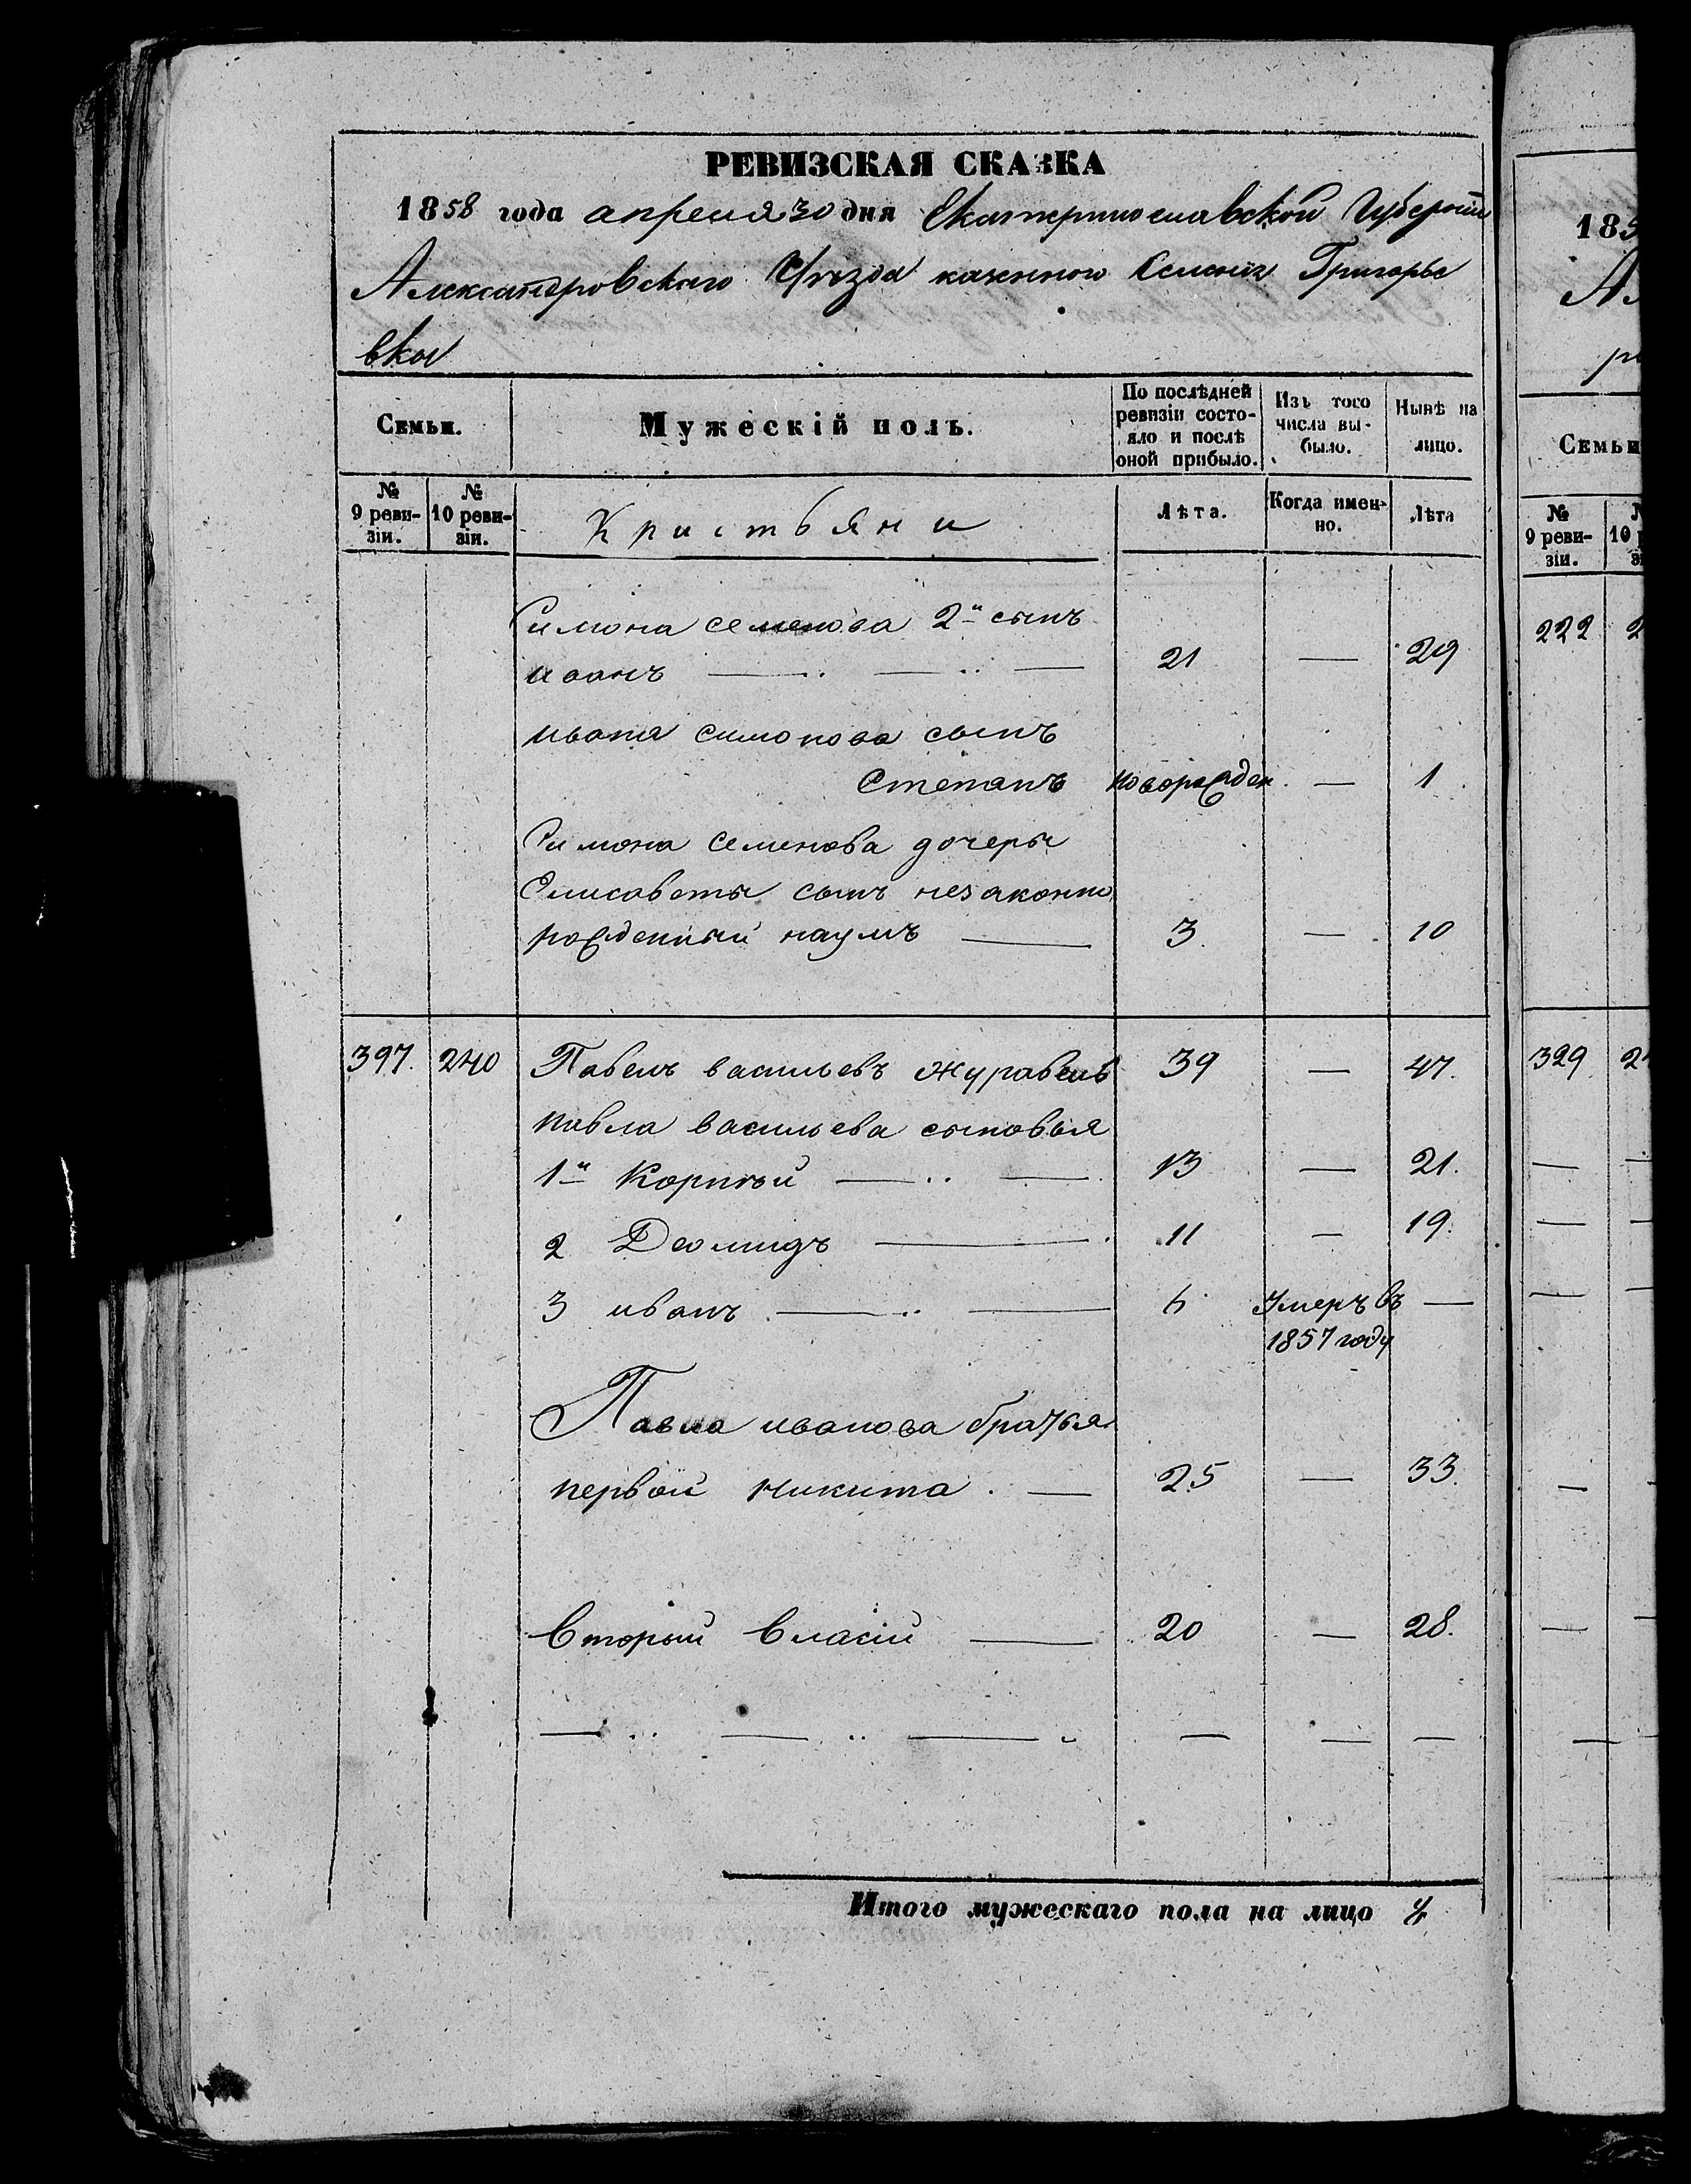 РЕВИЗСКАЯ СКАЗКА
1858 года апреля 30 дня Екатеринославской Губернии
Александровскаго Уѣзда казенного Селения Григорье
вки
Семьи.
Мужескій полъ.
По послѣдней ревизіи состо-
яло и послѣ
оной прибыло.
Изъ того
числа вы-
было.
Нынѣ на
лицо.
№ 9 реви-
зіи.
№ 10 реви-
зіи.
Кристьяни
Лѣта.
Когда имен-
но.
Лѣта
Симона семенова 2й сынъ
иванъ 21 — 29
ивана симонова сынъ
Степанъ новорожден — 1
Симона Семенова дочери
Елисаветы сынъ незаконно
рожденный наумъ 3 — 10
397. 240 Павелъ васильевъ журавель 39 — 47.
павла васильева сыновья
1й Корнѣй 13 — 21.
2 Деомидъ 11 — 19.
3 иванъ 6 Умеръ въ —
1857 году
Павла иванова братья
первой никита 25 — 33.
Вторый Власій 20 — 28.
Итого мужескаго пола на лицо
185
Семьи
№ 9 реви-
зіи.
222
329